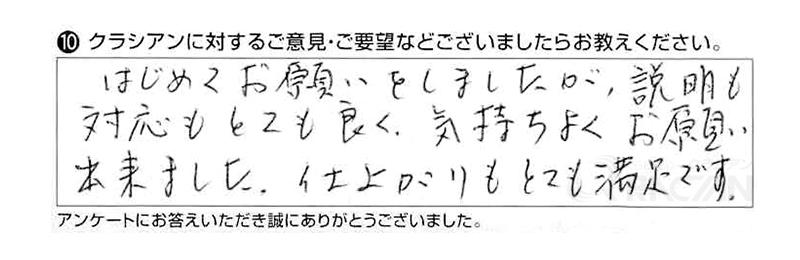 ⑩ クラシアンに対するご意見・ご要望などございましたらお教えください。
はじめてお願いをしましたが、説明も
対応もとても良く、気持ちよくお願い
出来ました。仕上がりもとても満足です。
アンケートにお答えいただき誠にありがとうございました。